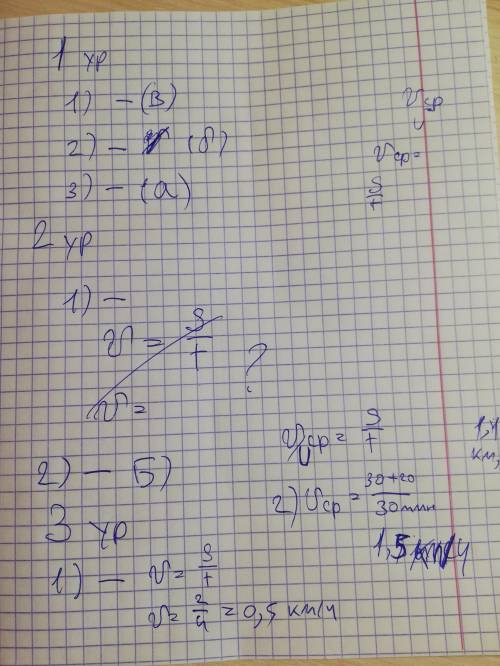 1 ур
1) - (В)
2) - (б)
3) - (а)
2 ур
1) -
v = S/t
v =
?
2) - Б)
3 ур
1) - v = S/t
v = 2/4 = 0,5 км/ч
vср
vср =
S/t
vср = S/t
2) vср = 30+20/30мин
1,5 км/ч
км,